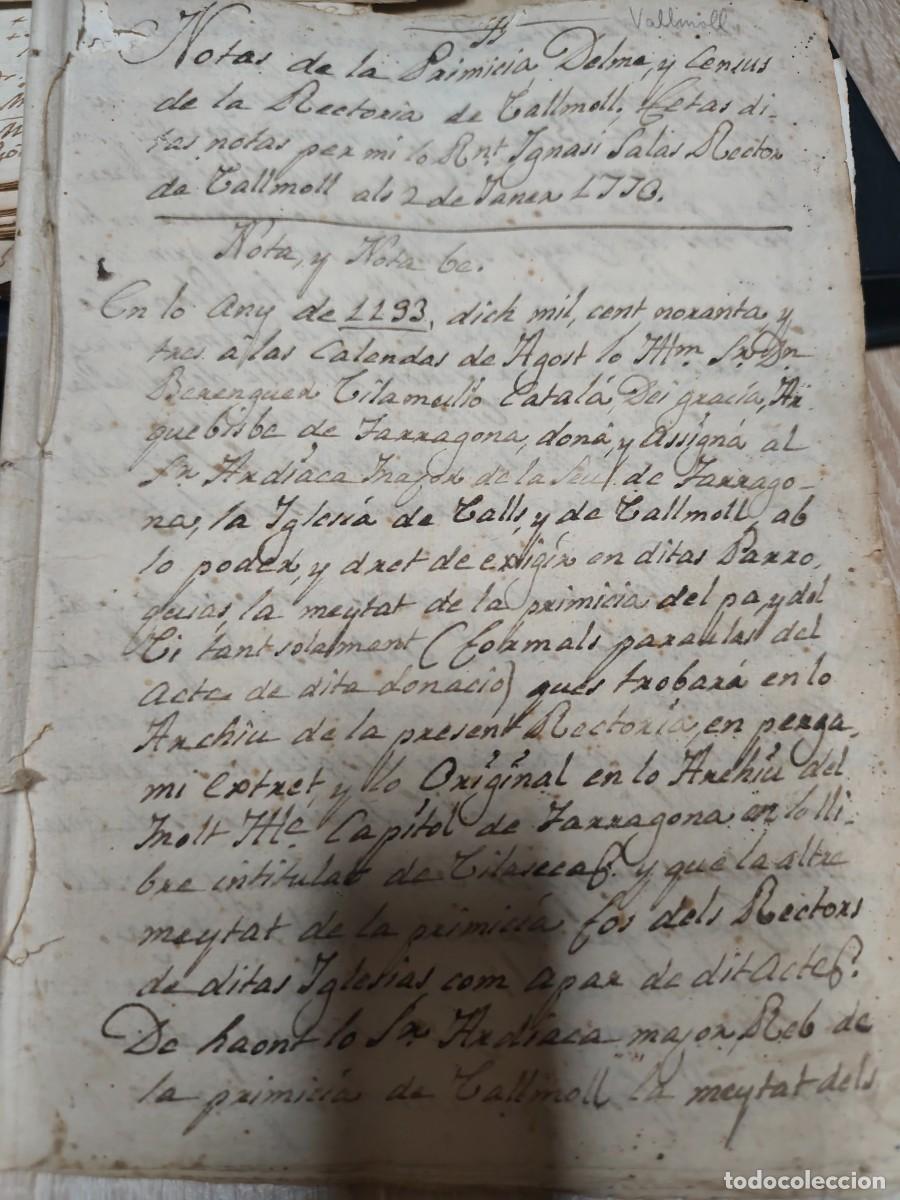 Vallmoll
Notas de la Primicia Delme, y Census
de la Rectoria de Vallmoll. Fetas di-
tas notas per mi lo Rnt. Ignasi Salas Rector
de Vallmoll als 2 de Janer 1773.
Nota, y Nota be.
En lo Any de 1193, dich mil, cent noranta y
tres á las Calendas de Agost lo Illm. Sr. Dn.
Berenguer Vilamullo Catalá, Dei gracia, Ar
quebisbe de Tarragona, doná, y Assigná al
Sr. Ardiaca Major de la Seu de Tarrago-
na, la Iglesia de Valls, y de Vallmoll, ab
lo poder, y dret de exigir en ditas Parro,
quias, la meytat de la primicia del pa, y del
Vi tant solament (formals paraulas del
Acte de dita donació) ques trobará en lo
Archiu de la present Rectoria, en perga,
mi extret, y lo Original en lo Archiu del
Molt Ille. Capitol de Tarragona en lo lli-
bre intitulat de Vilaseca y que la altre
meytat de la primicia fos dels Rectors
de ditas Iglesias com apar de dit Acte
De haont lo Sr. Ardiaca major, Reb de
la primicia de Vallmoll la meytat dels
todocoleccion